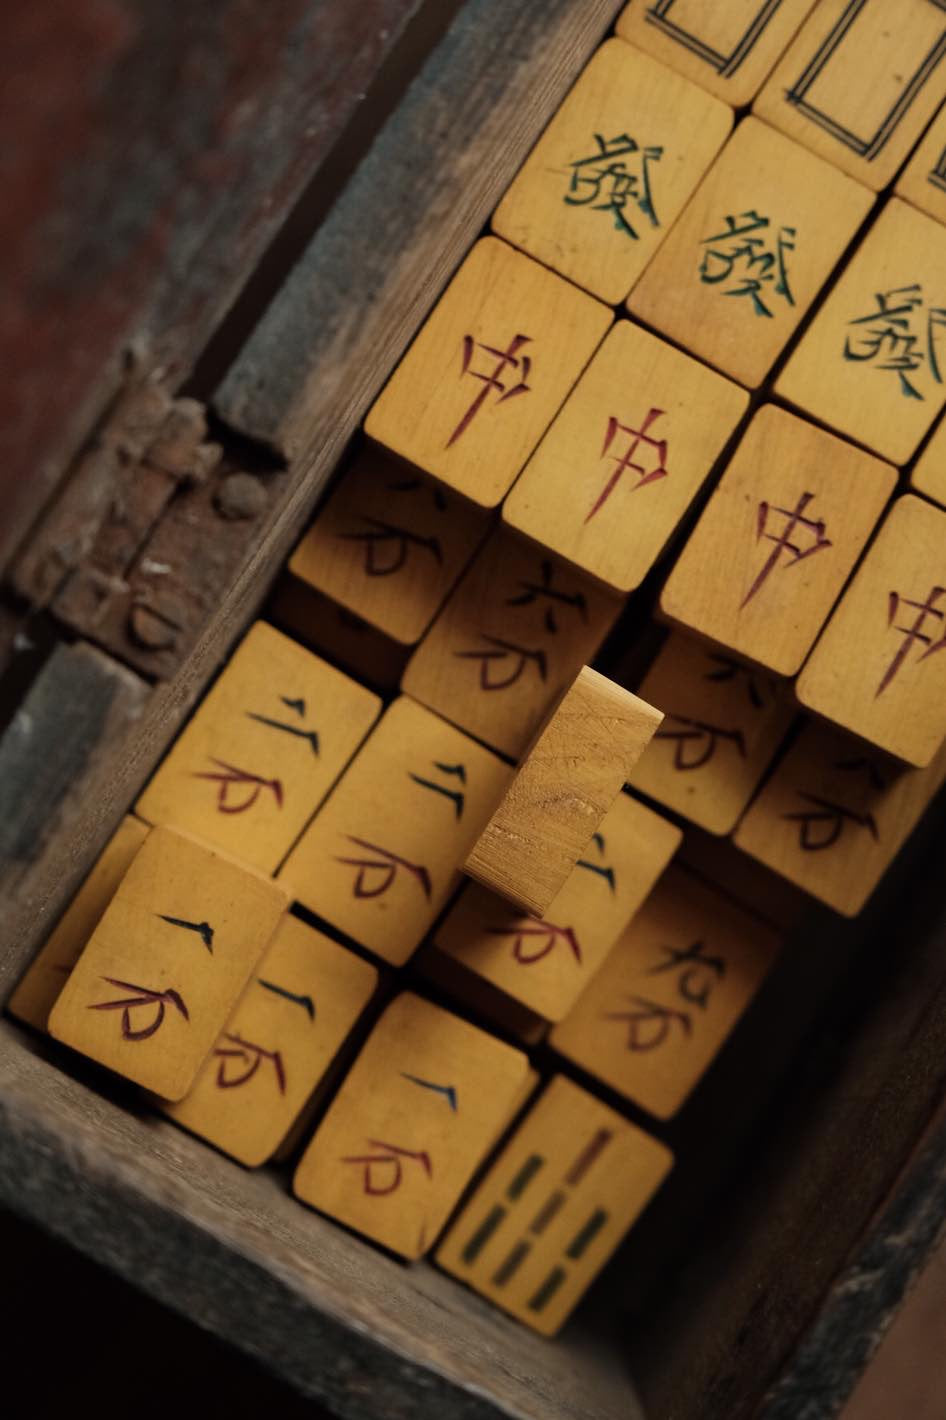 發
發
發
中
中
中
中
万
六万
六万
万
二万
二万
二万
九万
一万
一万
一万